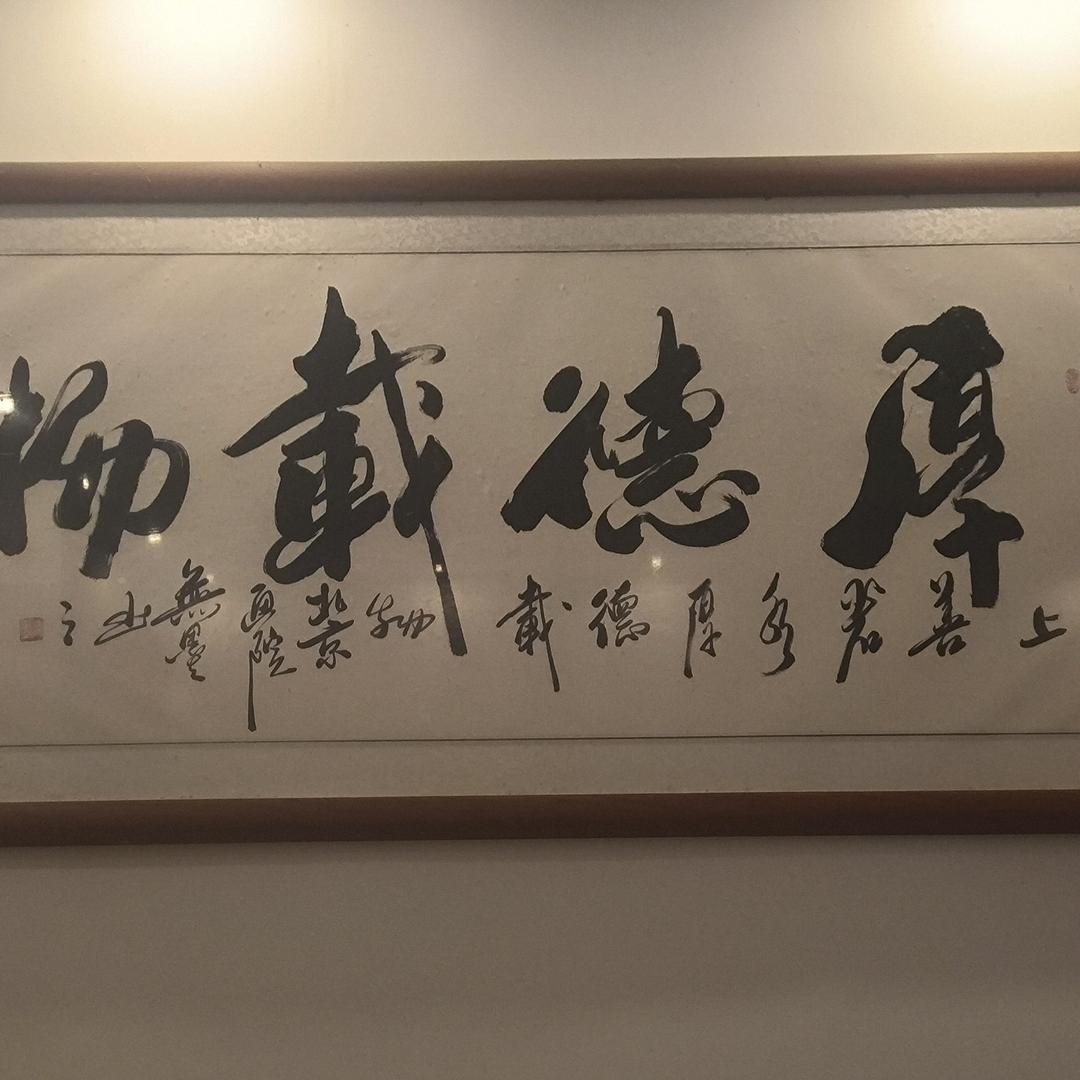 厚德載物
上善若水厚德載物北京畫院無墨